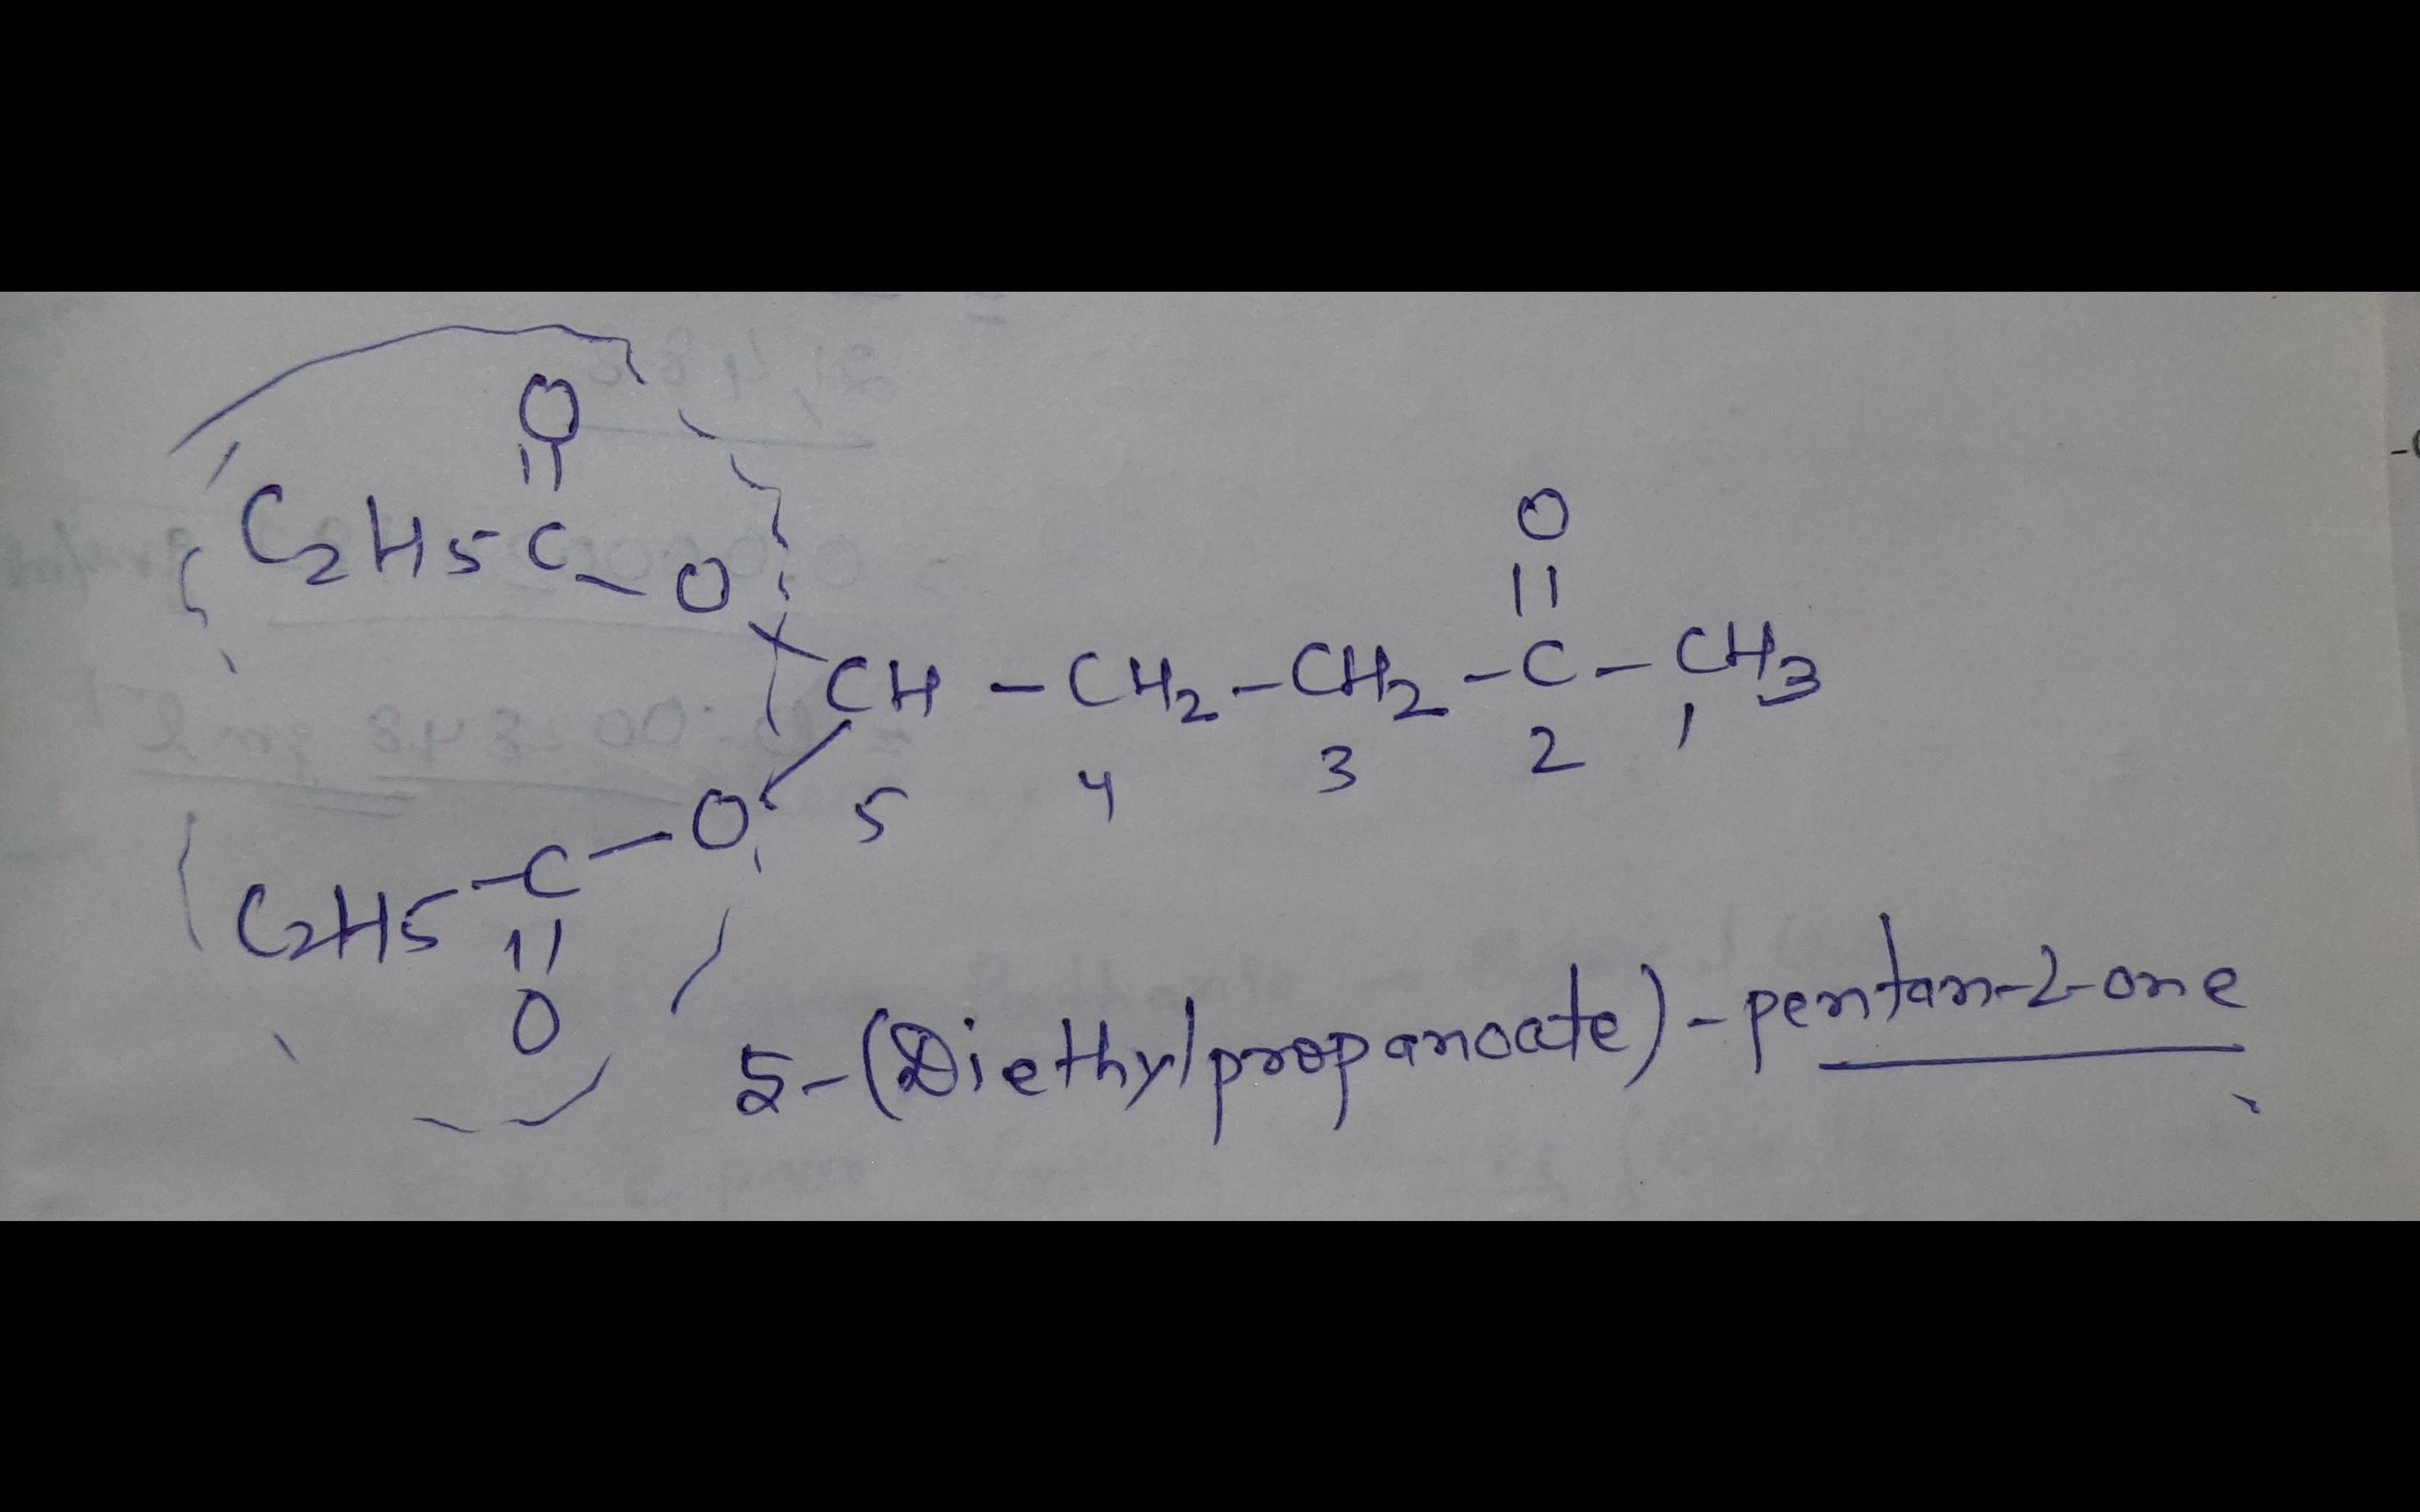 O
||
C2H5 C - O
O
||
CH - CH2 - CH2 - C - CH3
5 4 3 2 1
C2H5 - C - O
||
O
5-(Diethylpropanoate)-pentan-2-one